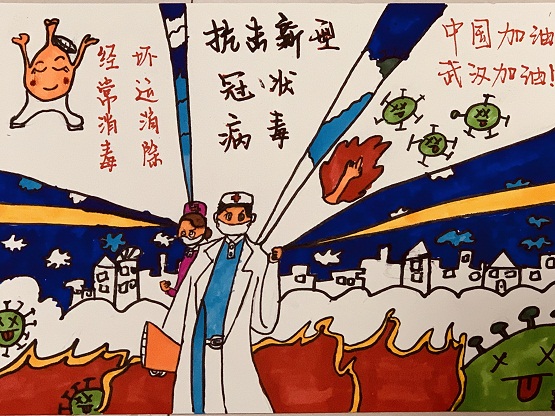 经常消毒
坏运消除
抗击新型
冠状
病毒
中国加油
武汉加油!